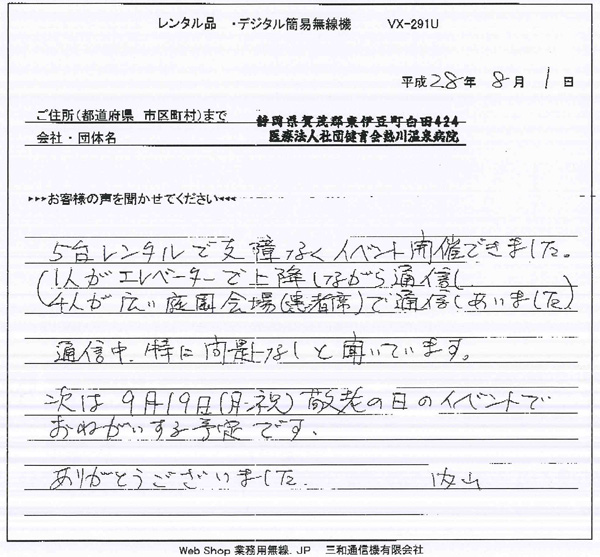 レンタル品 ・デジタル簡易無線機 VX-291U
平成28年 8月 1日
ご住所(都道府県 市区町村)まで 静岡県賀茂郡東伊豆町白田424
会社・団体名 医療法人社団健育会熱川温泉病院
▸▸▸お客様の声を聞かせてください◂◂◂
5台レンタルで支障なくイベント開催できました。
(1人がエレベーターで上降しながら通信し
4人が広い庭園会場(患者席)で通信しあいました)
通信中、特に問題なしと聞いています。
次は9月19日(月・祝)敬老の日のイベントで
おねがいする予定です。
ありがとうございました。 内山
Web Shop 業務用無線.JP 三和通信機有限会社